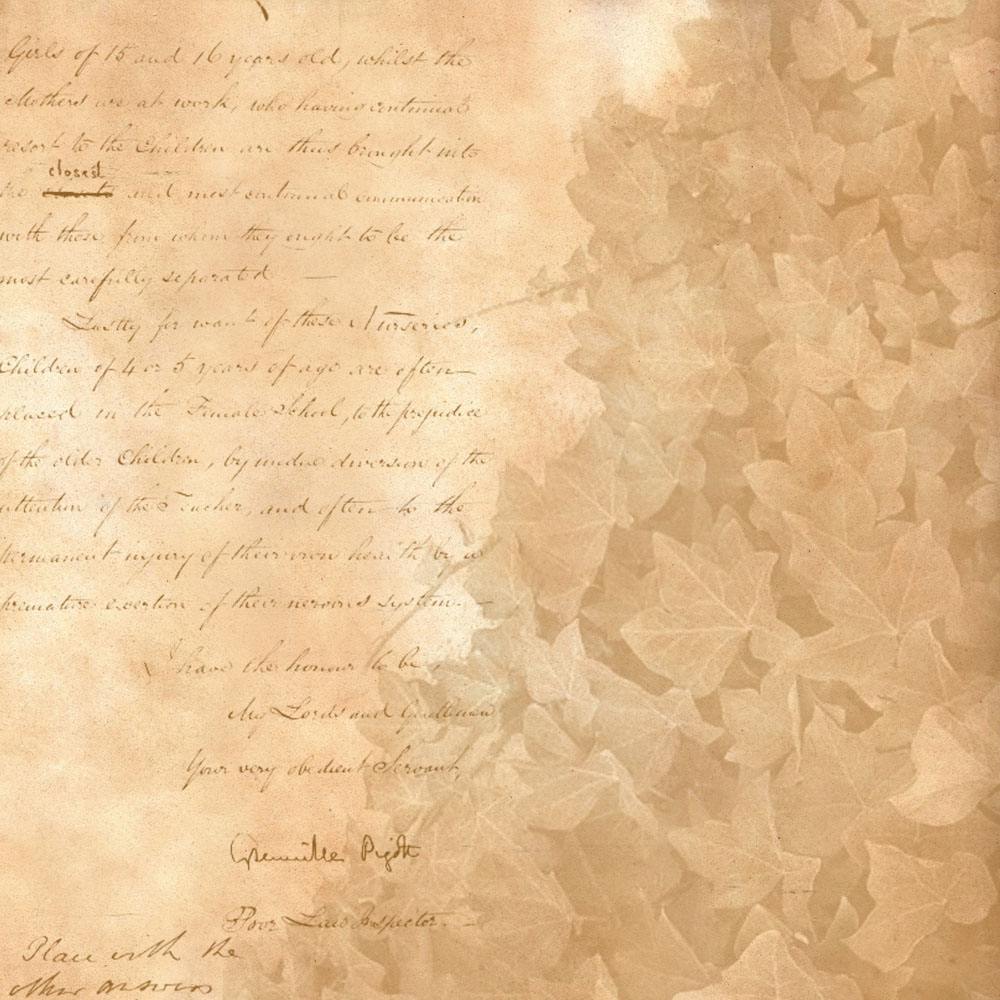 Girls of 15 and 16 years old, whilst the
Mothers are at work, who having continual
resort to the Children are thus brought into
closest
the and most continual communication
with those from whom they ought to be the
most carefully separated —
Lastly for want of these Nurseries,
Children of 4 or 5 years of age are often
placed in the Female School, to the prejudice
of the older Children, by undue diversion of the
attention of the Teacher, and often to the
permanent injury of their own health, by a
premature exertion of their nervous system. —
I have the honour to be,
My Lords and Gentlemen
Your very obedient Servant,
Grenville Pigott
Poor Law Inspector. —
Place with the
other answers